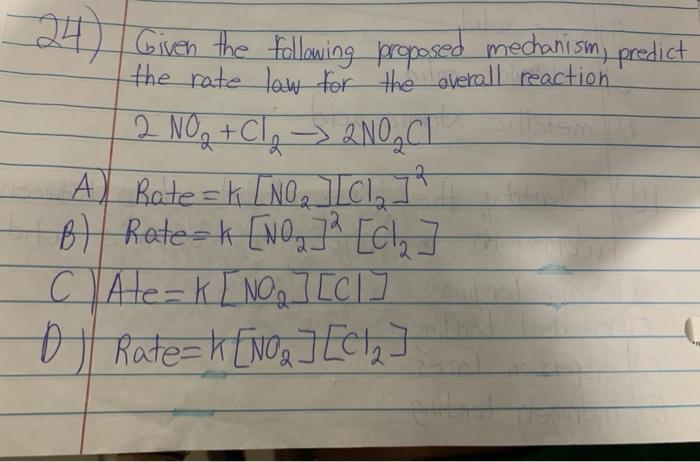 24) Given the following proposed mechanism, predict
the rate law for the overall reaction
2 NO₂ + Cl₂ → 2NO₂Cl
A) Rate = k [NO₂][Cl₂]²
B) Rate = k [NO₂]² [Cl₂]
C) Ate = k [NO₂][Cl]
D) Rate = k [NO₂][Cl₂]